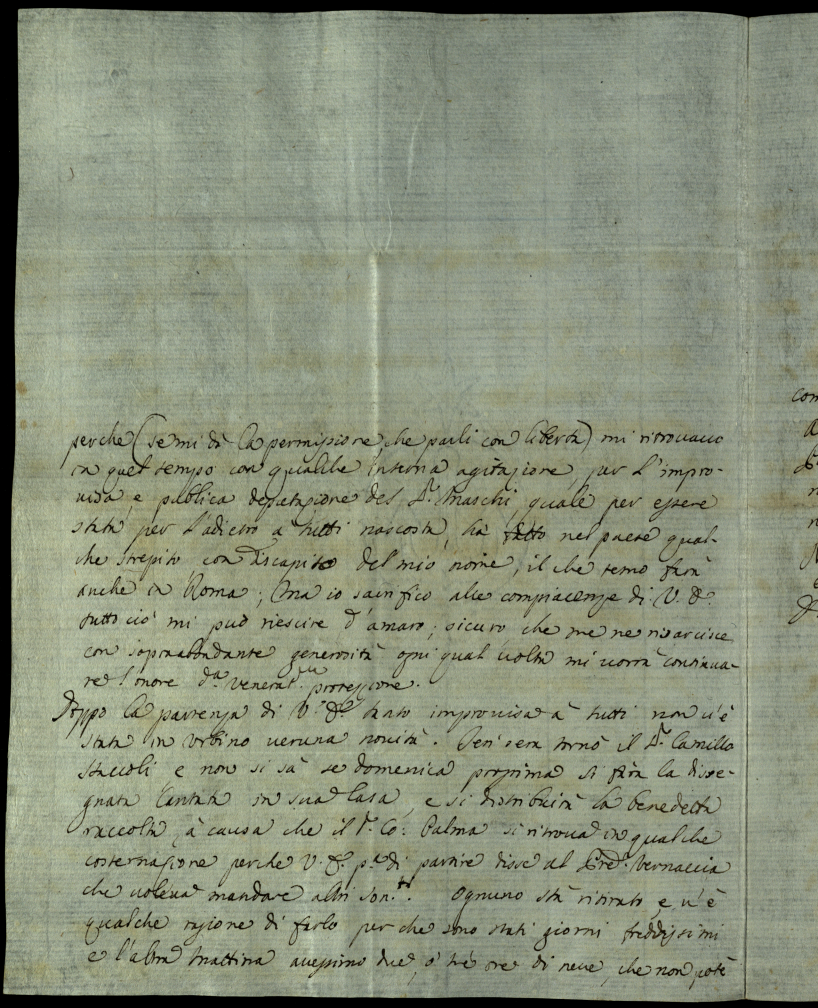 perche (se mi dà la permissione, che parli con libertà) mi ritrouauo
in quel tempo con qualche interna agitazione, per l'impro-
uisa, e publica deputazione del S.r Maschi, quale per essere
stata per l'adietro à tutti nascosta, hà fatto nel paese qual-
che strepito, con discapito del mio nome, il che temo farà
anche in Roma; Ma io sacrifico alle compiacenze di V. S.
tutto ciò mi può riescire d'amaro; sicuro, che me ne risarcisce
con sopraabondante generosità ogni qual uolta mi uorrà continua-
re l'onore d.a uenerat.ma protezione.
Doppo la partenza di V. S. tanto improuisa à tutti non u'è
stata in Urbino ueruna nouità. Ieri sera tornò il S.r Camillo
Staccoli e non si sà se domenica prossima si farà la dise-
gnata Cantata in sua Casa, e si distribuirà la benedetta
raccolta, à causa che il S.r Co: Palma si ritroua in qualche
costernazione perche V. S. p.a di partire disse al Pred. Vernaccia
che uoleua mandare altri son.tti. Ognuno stà ritirato, e u'è
qualche ragione di farlo perche sono stati giorni freddissimi
e l'altra mattina auessimo due, ò trè ore di neue, che non potè
com